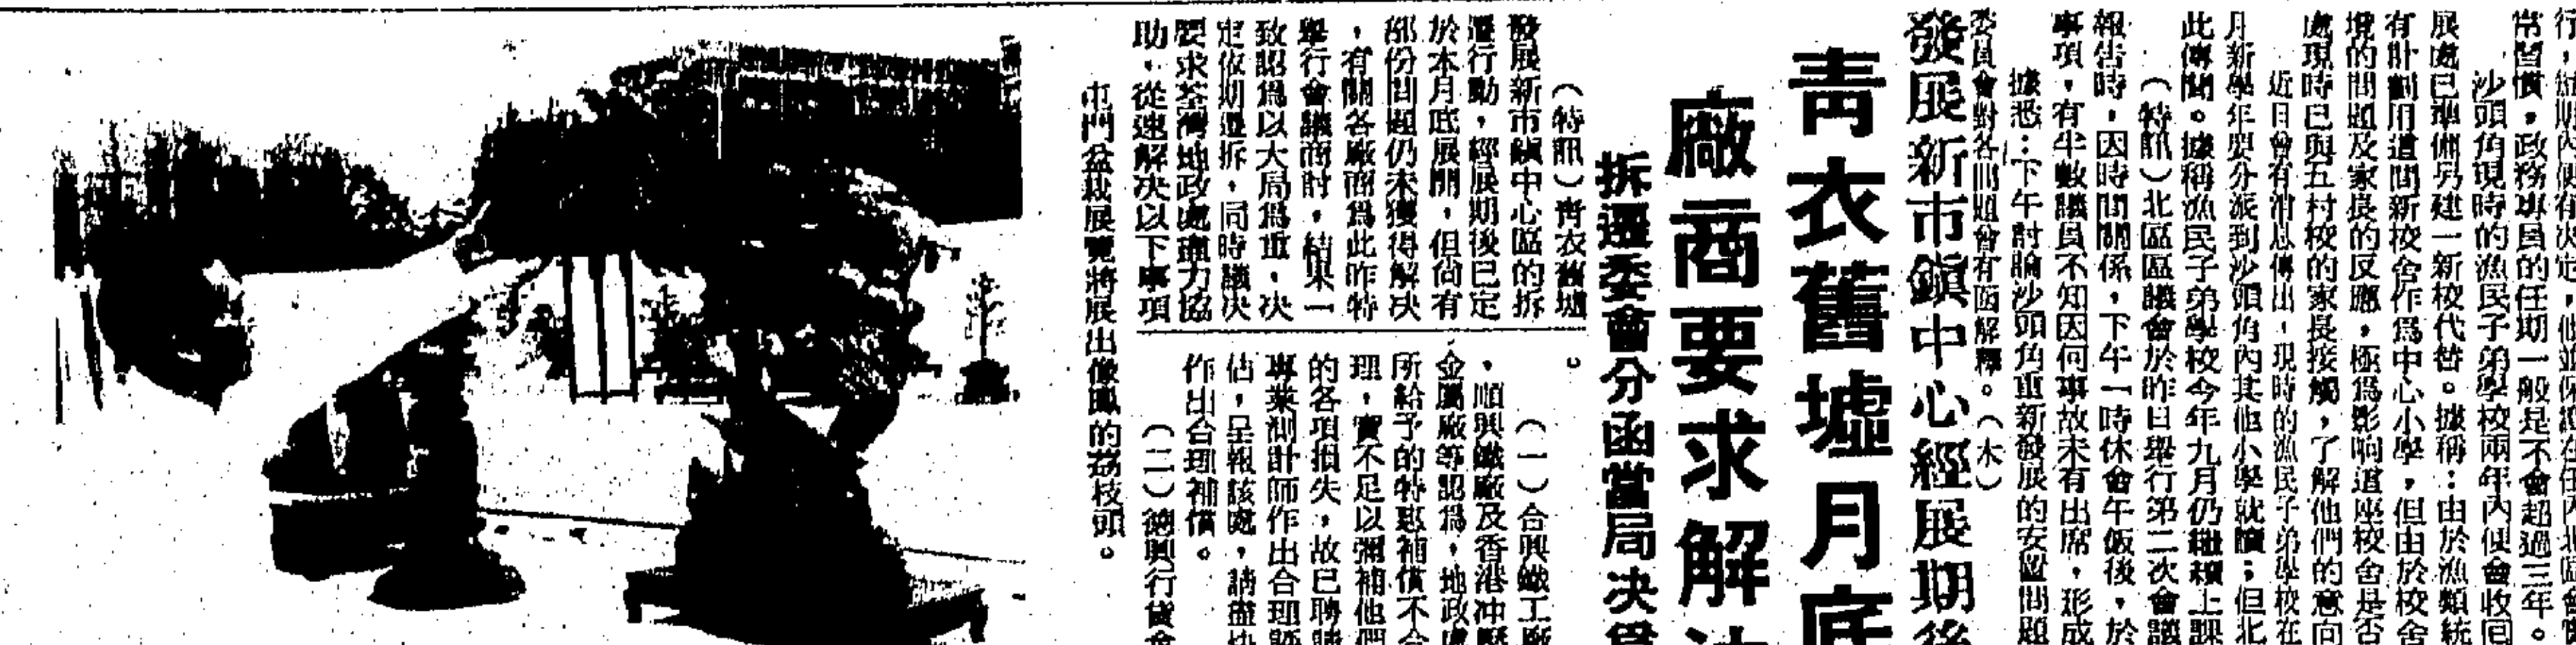 常習慣,政務專員的任期一般是不會超過三年。
沙頭角現時的漁民子弟學校兩年內便會收回
展處已準備另建一新校代替。據稱:由於漁類統
有計劃用這間新校舍作為中心小學,但由於校舍
境的問題及家長的反應,極為影响這座校舍是否
處現時已與五村校的家長接觸,了解他們的意向
近日曾有消息傳出,現時的漁民子弟學校在
月新學年要分派到沙頭角內其他小學就讀;但北
此傳聞。據稱漁民子弟學校今年九月仍繼續上課
(特訊)北區區議會於昨日舉行第二次會議
報告時,因時間關係,下午一時休會午飯後,於
事項,有半數議員不知因何事故未有出席,形成
據悉:下午討論沙頭角重新發展的安置問題
委員會對各問題會有函解釋。(木)
發展新市鎮中心經展期後
青衣舊墟月底
廠商要求解決
拆遷委會分函當局決
(特訊)青衣舊墟
發展新市鎮中心區的拆
遷行動,經展期後已定
於本月底展開,但尚有
部份問題仍未獲得解决
,有關各廠商為此昨特
舉行會議商討,結果一
致認為以大局為重,决
定依期遷拆,同時議决
要求荃灣地政處盡力協
助,從速解决以下事項
。
(一)合興鐵工廠
,順興鐵廠及香港冲壓
金屬廠等認為,地政處
所給予的特惠補償不合
理,實不足以彌補他們
的各項損失,故已聘請
專業測計師作出合理
估,呈報該處,請盡快
作出合理補償。
(二)德興行貨倉
屯門盆栽展覽將展出像鳳的荔枝頭。